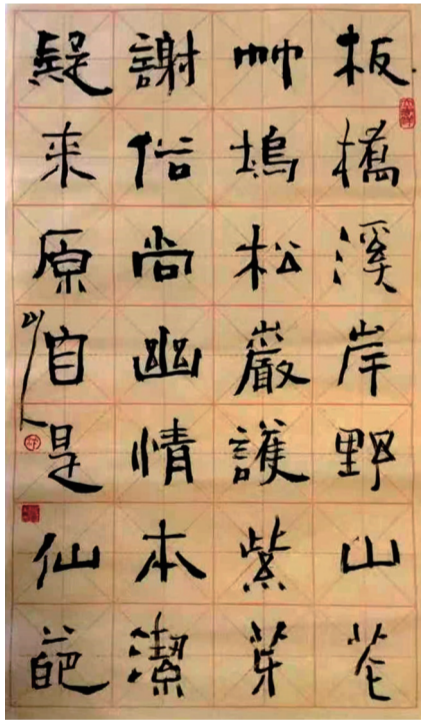 板橋溪岸野山花
艸塢松巖護紫芽
謝俗尚幽情本潔
疑来原自是仙葩
山人